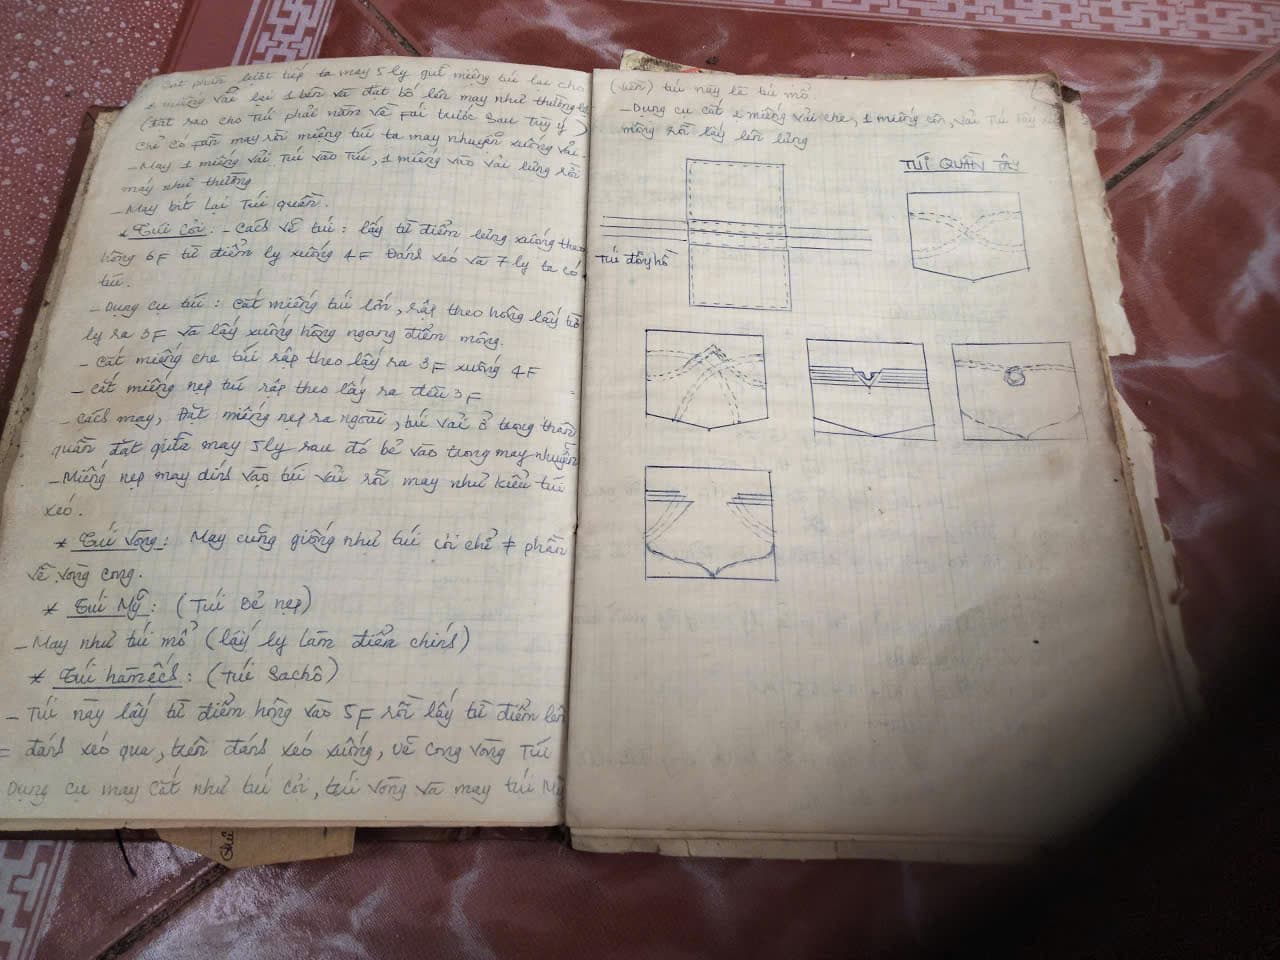 phần lượt tiếp ta may 5 ly gút miệng túi lại cho
2 miếng vải lại 1 bên và đặt bố lên may như thường
(đặt sao cho Túi phải nằm về Fái trước sau Tùy ý)
chỉ có Fần may rồi miệng túi ta may nhuyễn xuống vải.
- May 1 miếng vải Túi vào Túi, 1 miếng vào vải lưng rồi
may như thường
- May bít lại Túi quần.
* Túi Còi. - Cách vẽ túi: lấy từ điểm lưng xuống theo
hông 6F từ điểm ly xuống 4F Đánh xéo và 7 ly ta có
túi.
- Dụng cụ túi: cắt miếng túi lớn, rập theo hông lấy từ
ly ra 3F và lấy xuống hông ngang điểm mông.
- cắt miếng che túi rập theo lấy ra 3F xuống 4F
- cắt miếng nẹp túi rập theo lấy ra đều 3F
- cách may, Đặt miếng nẹp ra ngoài, túi vải ở trong thân
quần đặt giữa may 5 ly sau đó bẻ vào trong may nhuyễn
- Miếng nẹp may dính vào túi vải rồi may như kiểu túi
xéo.
* Túi Vòng: May cũng giống như túi còi chỉ ≠ phần
vẽ vòng cong.
* Túi Mỹ: (Túi Bẻ nẹp)
- May như túi mổ (lấy ly làm điểm chính)
* Túi hàmếch: (Túi Sachô)
- Túi này lấy từ điểm hông vào 5F rồi lấy từ điểm lên
= đánh xéo qua, trên đánh xéo xuống, vẽ cong vòng Túi
Dụng cụ may cắt như túi còi, túi vòng và may túi Mỹ
(viền) túi này là túi mổ.
- Dụng cụ cắt 2 miếng vải che, 1 miếng cơi, vải Túi lấy
mông rồi lấy lên lưng
TÚI QUẦN TÂY
Túi đồng hồ